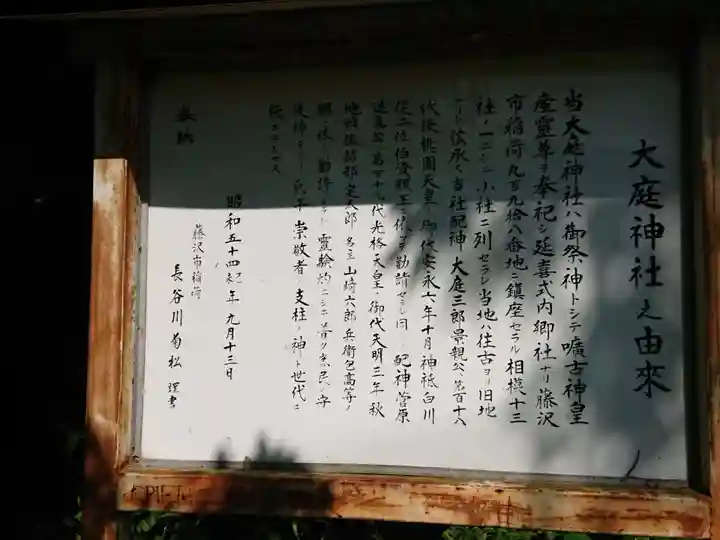 大庭神社之由來
当大庭神社ハ御祭神トシテ嚝古神皇
産靈尊ヲ奉祀シ延喜式内郷社ナリ藤沢
市稲荷九百九拾八番地ニ鎮座セラル相模十三
社ノ一ニシテ小社ニ列セラレ当地ハ往古ヨリ旧地
ナート伝承ス当社配神ノ大庭三郎景親公ハ第百十八
代後桃園天皇ノ御代安永六年十月神祇白川
従二位伯資顕王ニ依
勧請セラレ同ジ
配神菅原
道真公ハ第百十九代光格天皇ノ御代天明三年秋
地頭
定太郎 名主山﨑六郎兵衛包高等ノ
願ニ依
勧請
靈験灼ニシテ普ク
氏子
崇敬者ノ支柱ノ神ト世代ニ
伝
奉納
昭和五十四年 九月十三日
藤沢市稲荷
長谷川菊松